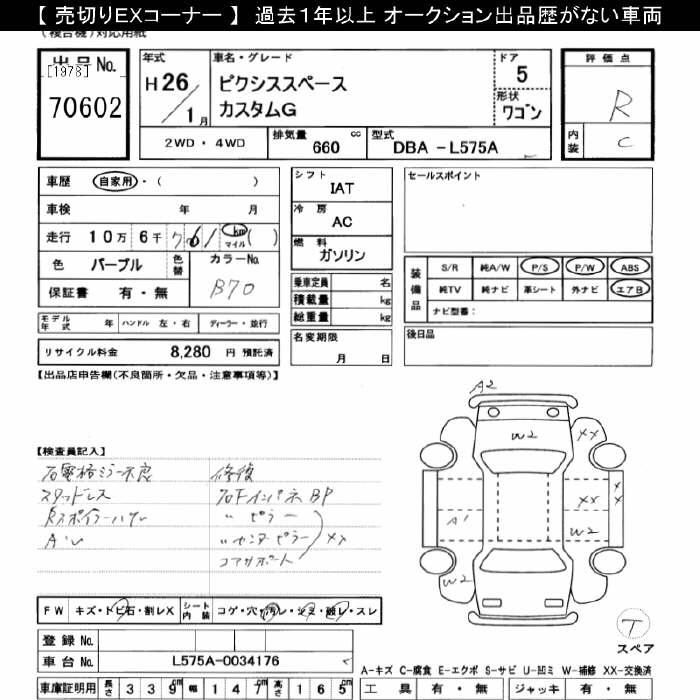 【 売切りEXコーナー 】 過去1年以上 オークション出品歴がない車両
出品No.
[1978]
70602
年式
H26/1月
車名・グレード
ピクシススペース
カスタムG
ドア
5
形状
ワゴン
評価点
R
内装
C
2WD・4WD
排気量
660 cc
型式
DBA -L575A
車歴 自家用・( )
車検 年 月
走行 10万 6千 761 km マイル ( )
色 パープル 色替 カラーNo.
B70
保証書 有・無
モデル年式 年 ハンドル 左・右 ディーラー・並行
リサイクル料金 8,280 円 預託済
シフト
IAT
冷房
AC
燃料
ガソリン
乗車定員 名
積載量 kg
総重量 kg
名変期限
月 日
セールスポイント
装備品
S/R 純A/W P/S P/W ABS
純TV 純ナビ 革シート 外ナビ エアB
ナビ型番:
後日品
【出品店申告欄(不良箇所・欠品・注意事項等)】
【検査員記入】
右電格ミラー不良
スタッドレス
Rスポイラーハゲ
修復
右Fインパネ BP
〃 ピラー
〃センターピラー
XX
コアサポート
A2
W2
XX
XX
XX
A1
W2
W2
T
スペア
FW キズ・トビ石・割レX シート内装 コゲ・穴・汚レ・シミ・破レ・スレ
登録 No.
車台 No. L575A-0034176
車庫証明用 長さ 339cm 幅 147cm 高さ 165cm
A-キズ C-腐食 E-エクボ S-サビ U-凹ミ W-補修 XX-交換済
工具 有・無 ジャッキ 有・無